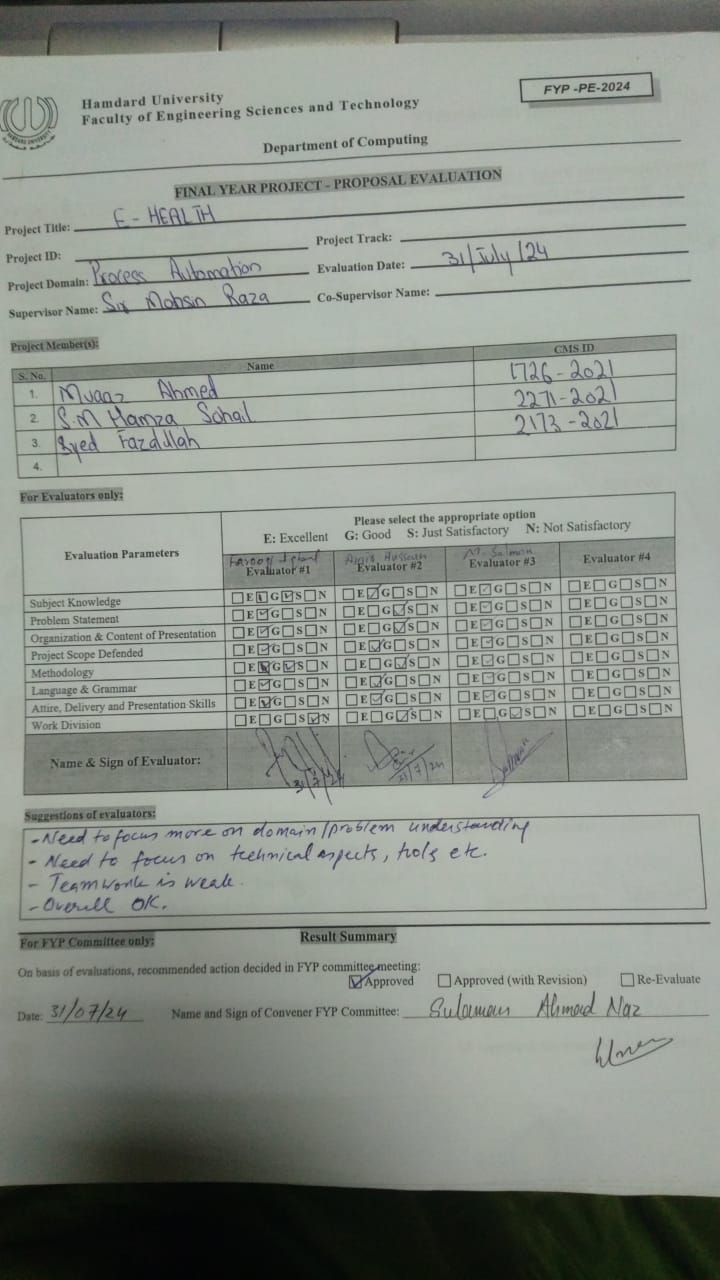 Hamdard University
Faculty of Engineering Sciences and Technology
FYP -PE-2024
Department of Computing
FINAL YEAR PROJECT - PROPOSAL EVALUATION
Project Title: E - HEALTH
Project ID:
Project Track:
Project Domain: Process Automation
Evaluation Date: 31/July/24
Supervisor Name: Sir Mohsin Raza
Co-Supervisor Name:
Project Member(s):
S. No. Name CMS ID
1. Muaaz Ahmed 1726-2021
2. S.M Hamza Sohail 2271-2021
3. Syed Fazdullah 2173-2021
4.
For Evaluators only:
Evaluation Parameters
Please select the appropriate option
E: Excellent G: Good S: Just Satisfactory N: Not Satisfactory
M. Salman
Evaluator #1 Evaluator #2 Evaluator #3 Evaluator #4
Subject Knowledge E G S N E G S N E G S N E G S N
Problem Statement E G S N E G S N E G S N E G S N
Organization & Content of Presentation E G S N E G S N E G S N E G S N
Project Scope Defended E G S N E G S N E G S N E G S N
Methodology E G S N E G S N E G S N E G S N
Language & Grammar E G S N E G S N E G S N E G S N
Attire, Delivery and Presentation Skills E G S N E G S N E G S N E G S N
Work Division E G S N E G S N E G S N E G S N
Name & Sign of Evaluator: 31/7/24 31/7/24 Salman
Suggestions of evaluators:
- Need to focus more on domain/problem understanding
- Need to focus on technical aspects, tools etc.
- Teamwork is weak.
- Overall OK.
For FYP Committee only:
Result Summary
On basis of evaluations, recommended action decided in FYP committee meeting:
Approved Approved (with Revision) Re-Evaluate
Date: 31/07/24 Name and Sign of Convener FYP Committee: Sulaman Ahmad Naz